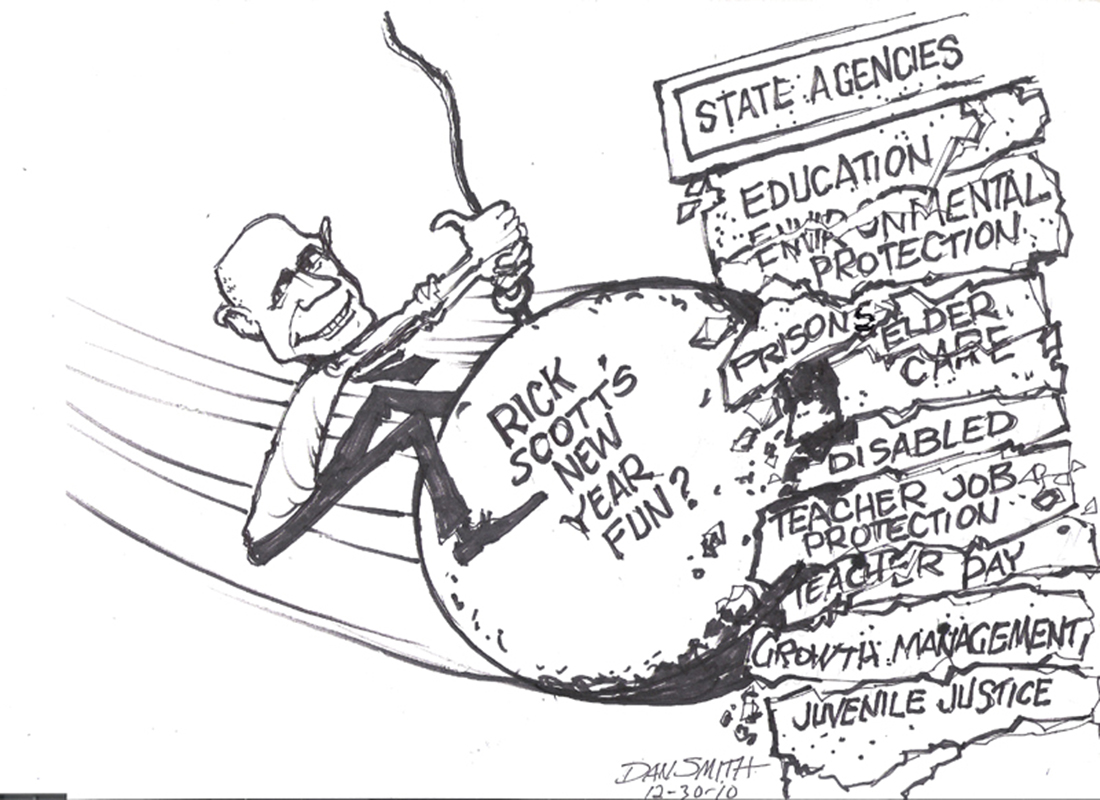 STATE AGENCIES
EDUCATION
ENVIRONMENTAL
PROTECTION
PRISONS
ELDER
CARE
DISABLED
TEACHER JOB
PROTECTION
TEACHER PAY
GROWTH MANAGEMENT
JUVENILE JUSTICE
RICK
SCOTT'S
NEW
YEAR
FUN?
DAN SMITH
12-30-10